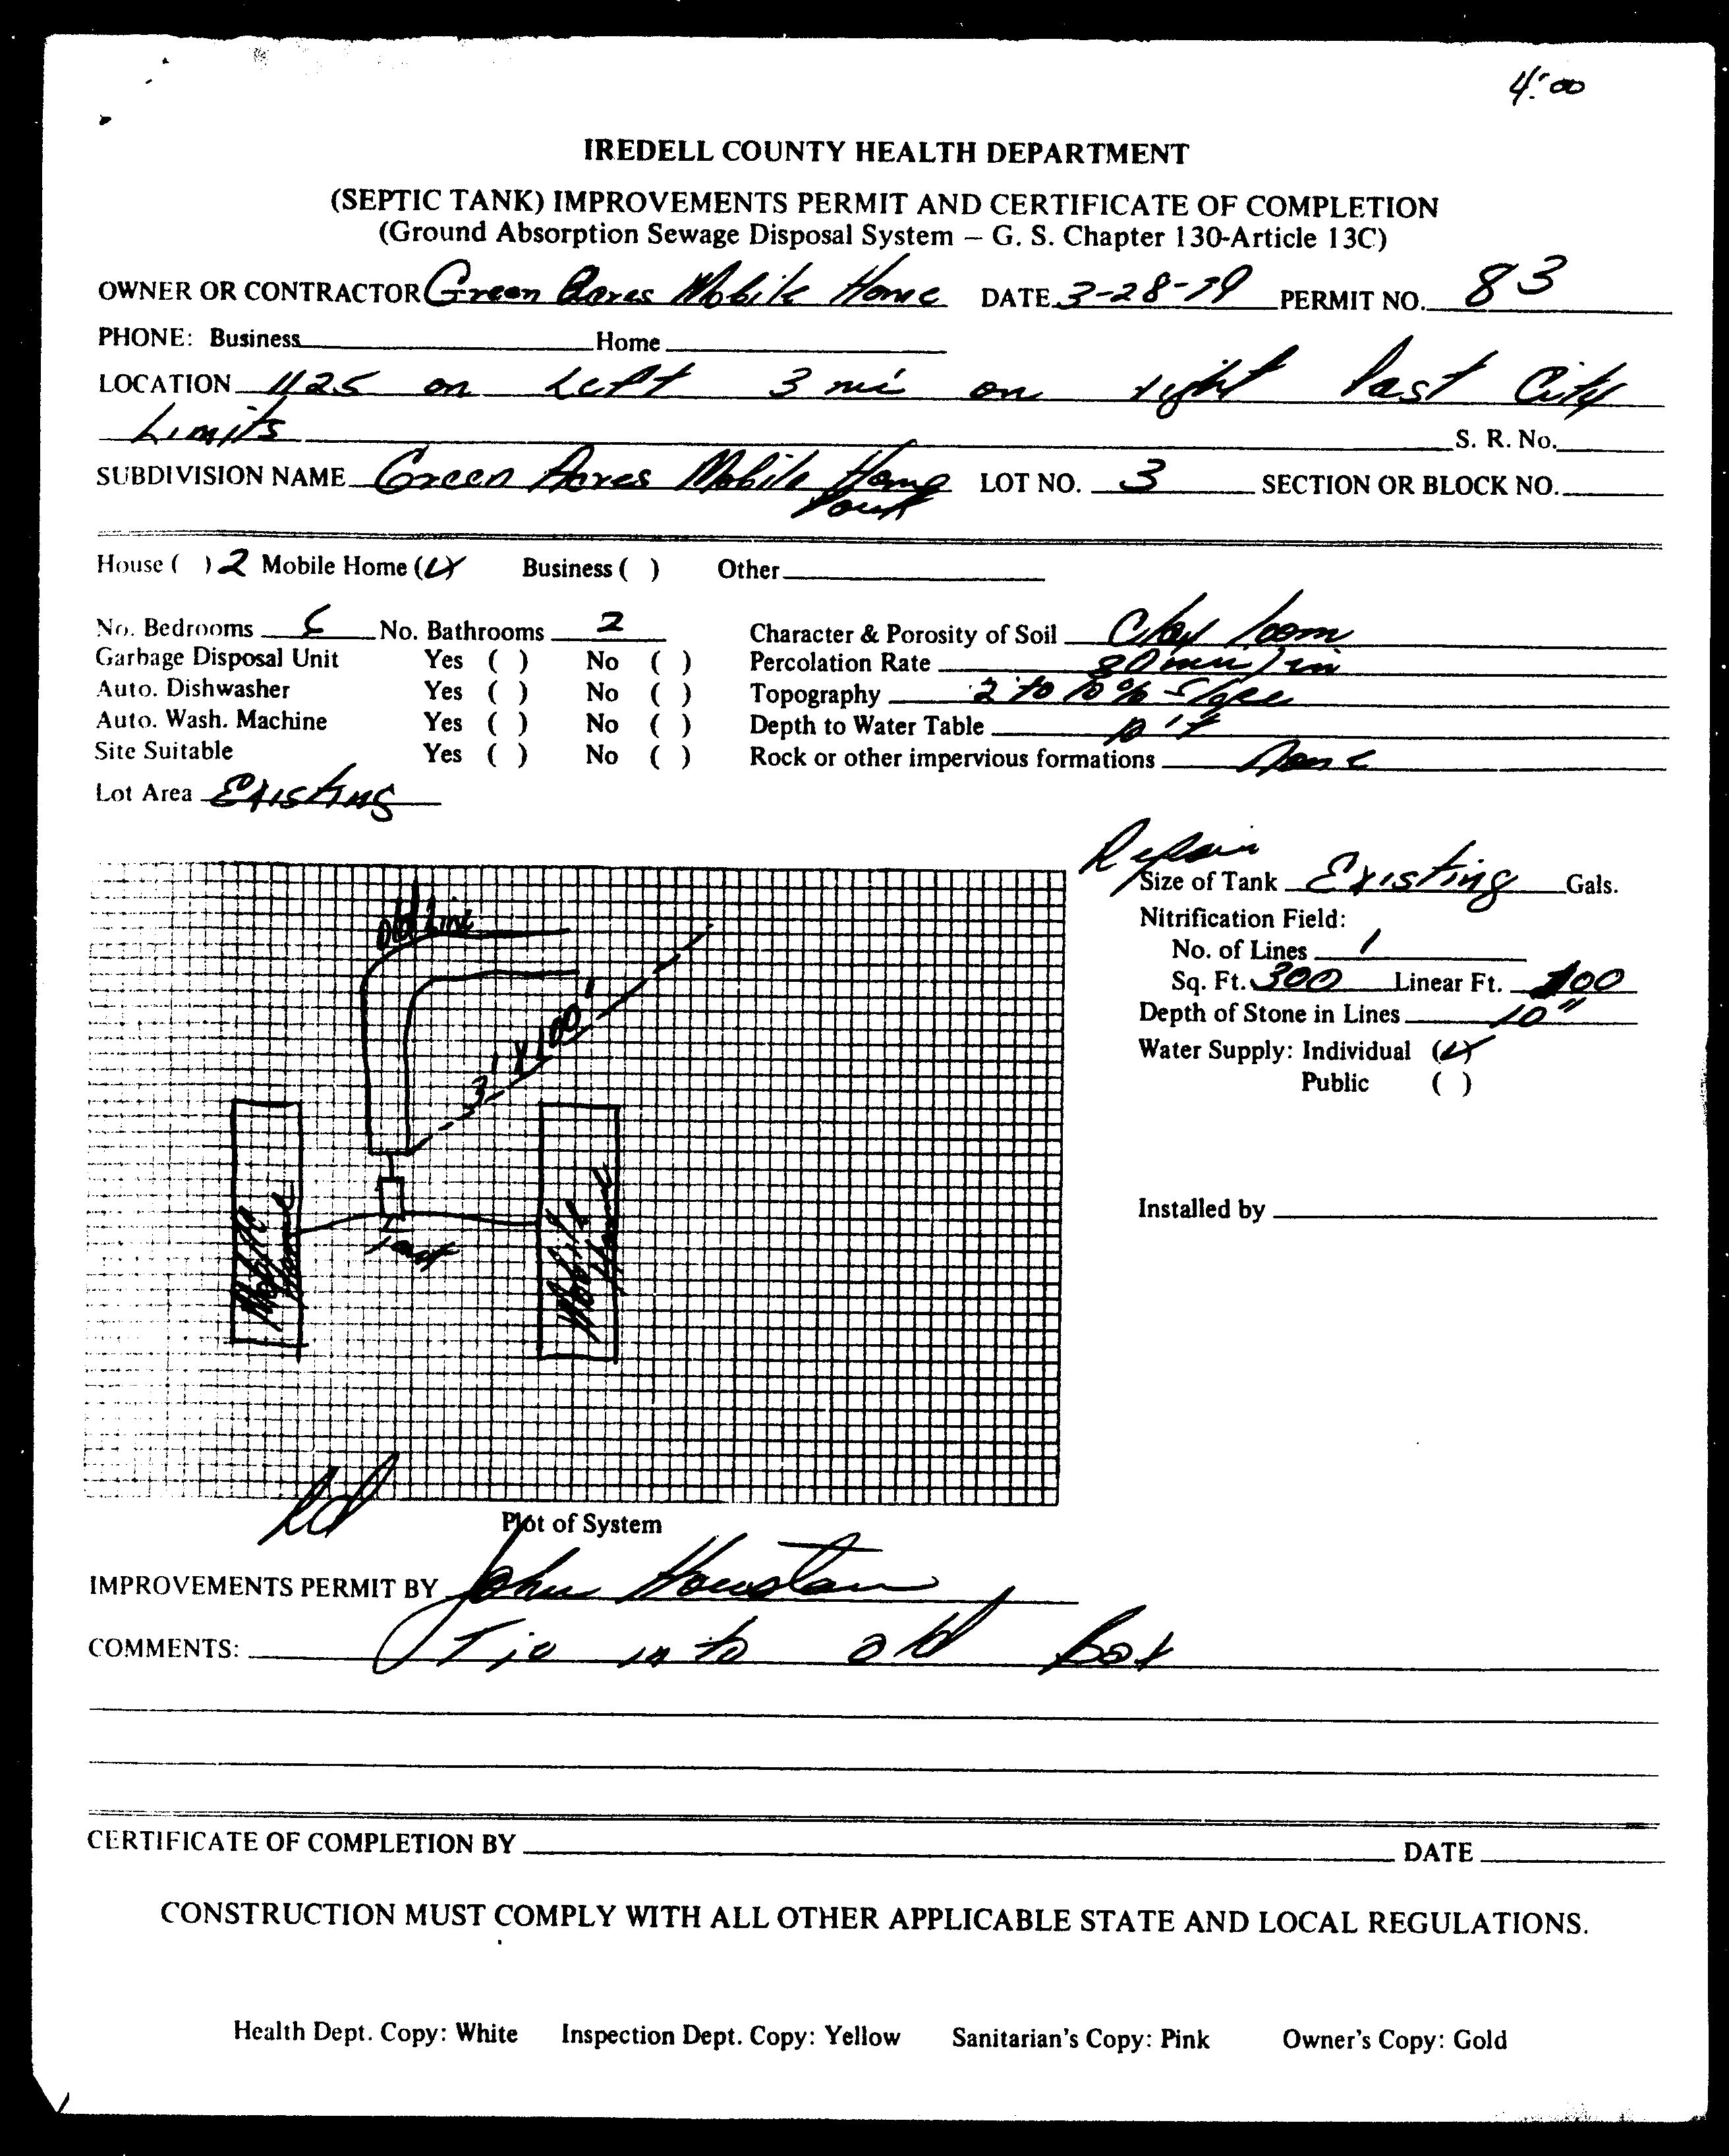 4:00
IREDELL COUNTY HEALTH DEPARTMENT
(SEPTIC TANK) IMPROVEMENTS PERMIT AND CERTIFICATE OF COMPLETION
(Ground Absorption Sewage Disposal System – G. S. Chapter 130-Article 13C)
OWNER OR CONTRACTOR Green Acres Mobile Home DATE 3-28-79 PERMIT NO. 83
PHONE: Business Home
LOCATION 1125 on Left 3 mi on right Past City
Limits S. R. No.
SUBDIVISION NAME Green Acres Mobile Home LOT NO. 3 SECTION OR BLOCK NO.
House ( ) 2 Mobile Home (✓) Business ( ) Other
No. Bedrooms No. Bathrooms 2 Character & Porosity of Soil Clay loom
Garbage Disposal Unit Yes ( ) No ( ) Percolation Rate min/in
Auto. Dishwasher Yes ( ) No ( ) Topography 2 to 10% Slope
Auto. Wash. Machine Yes ( ) No ( ) Depth to Water Table 10'+
Site Suitable Yes ( ) No ( ) Rock or other impervious formations None
Lot Area Existing
Repair
Size of Tank Existing Gals.
Nitrification Field:
No. of Lines 1
Sq. Ft. 300 Linear Ft. 100
Depth of Stone in Lines 10"
Water Supply: Individual (✓)
Public ( )
Installed by
old Line
3' X 100'
Mobile Home
Mobile Home
Plot of System
IMPROVEMENTS PERMIT BY John Houston
COMMENTS: Tie in to old Box
CERTIFICATE OF COMPLETION BY DATE
CONSTRUCTION MUST COMPLY WITH ALL OTHER APPLICABLE STATE AND LOCAL REGULATIONS.
Health Dept. Copy: White Inspection Dept. Copy: Yellow Sanitarian's Copy: Pink Owner's Copy: Gold